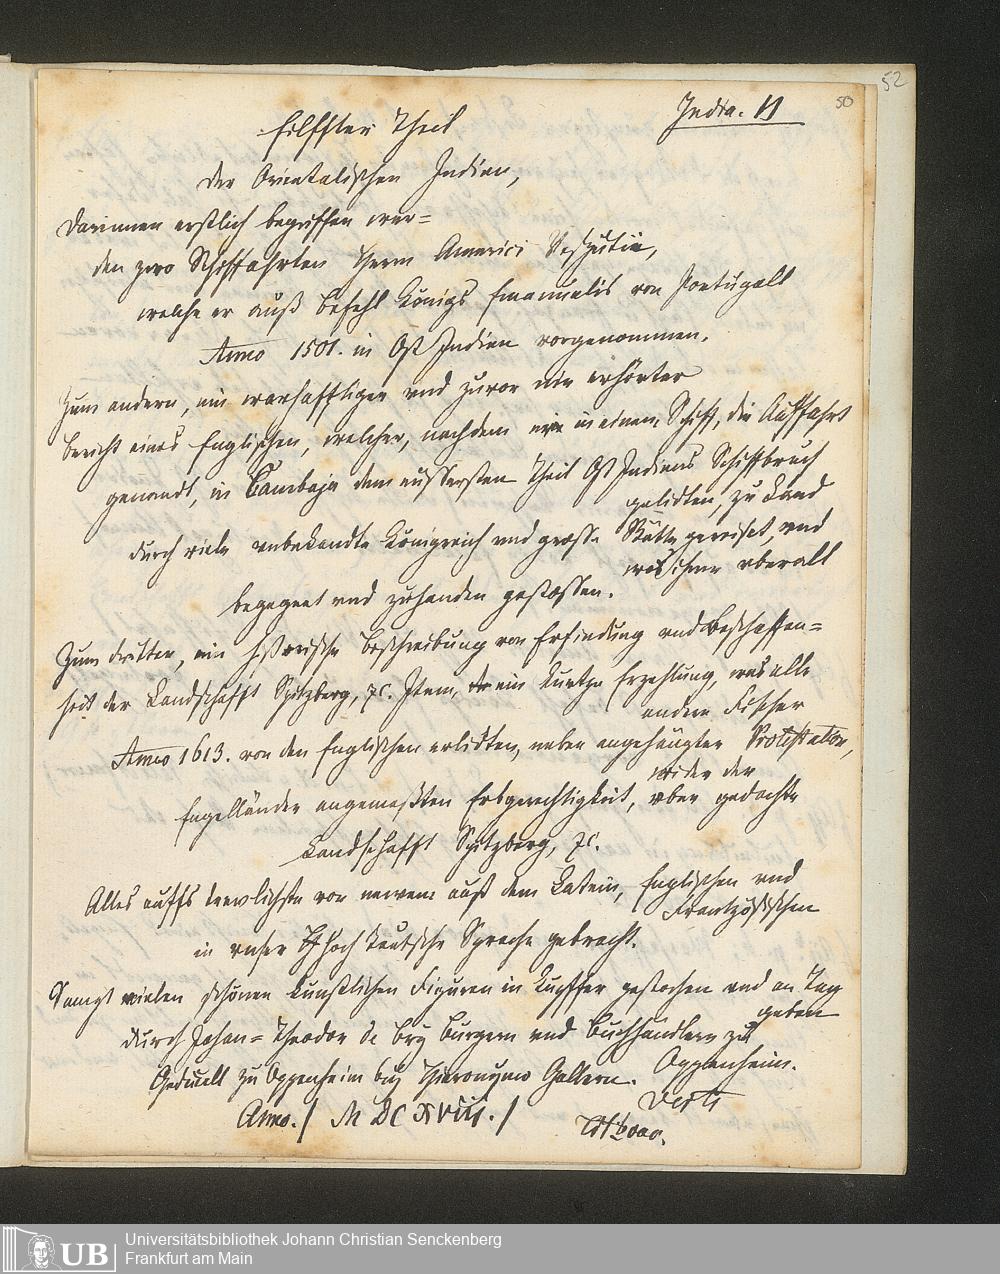 52
50
India. 11
Eilffter Theil
der Orientalischen Indien,
Darinnen erstlich begriffen wer=
den zwo Schiffahrten Herrn Americi Vesputii,
welche er auß Befehl Königs Emanuelis von Portugall
Anno 1501. in Ost Indien vorgenommen.
Zum andern, ein warhafftiger und zuvor nie erhörter
bericht eines Englischen, welcher, nachdem er in einem Schiff, die Auffahrt
genandt, in Cambaja dem eussersten Theil Ost Indiens Schiffbruch
gelidten, zu Land
durch viele unbekandte Königreich und grosse Stätte gereiset, und
was ihme uberall
begegnet und zuhanden gestossen.
Zum dritten, ein Historische Beschreibung von Erfindung und Beschaffen=
heit der Landschafft Spitzberg, ꝛc. Item, ein kurtze Erzehlung, was alle
andere Fischer
Anno 1613. von den Englischen erlidten, neben angehängter Protestation,
wider der
Engelländer angemaßten Erbgerechtigkeit, uber gedachte
Landschafft Spitzberg, ꝛc.
Alles auffs trewlichste von newem auß dem Latein, Englischen und
Frantzösischen
in unser Hoch Teutsche Sprache gebracht.
Sampt vielen schönen kunstlichen Figuren in Kupffer gestochen und an Tag
geben
durch Johan= Theodor de Bry Burgern und Buchhändlern zu
Oppenheim.
Gedruckt zu Oppenheim bey Hieronymo Gallern.
Anno. / M DC XVIII. /
Universitätsbibliothek Johann Christian Senckenberg
Frankfurt am Main
UB